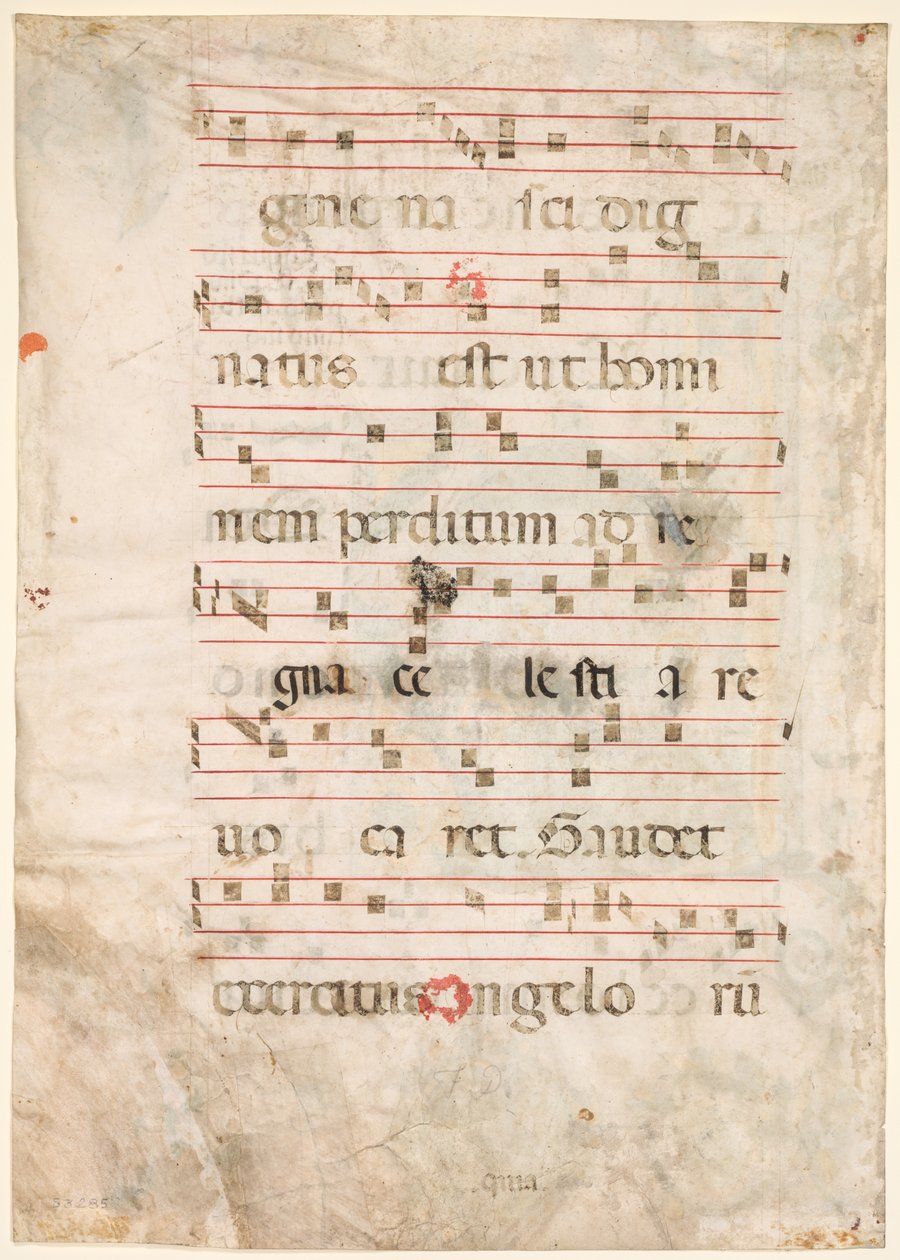 gine na sci dig
natus est ut homi
nem perditum ad re
gna ce le sti a re
uo ca ret. Gaudet
exercitus angelo rū
F D
quia
53285